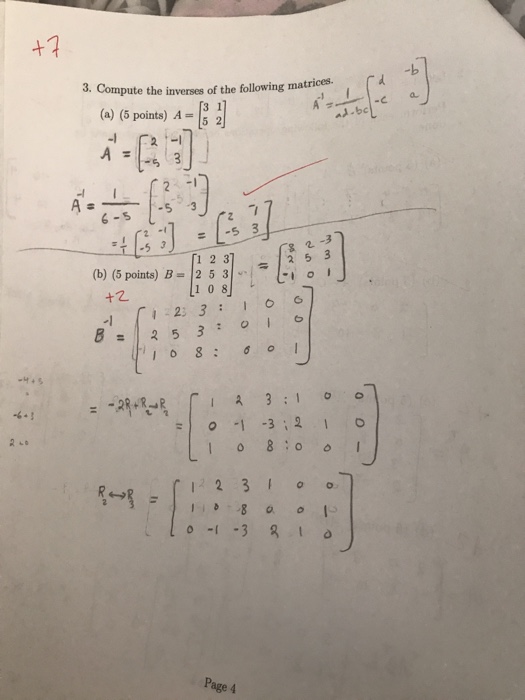 +7
3. Compute the inverses of the following matrices.
A⁻¹ = 1/(ad-bc) [d -b; -c a]
(a) (5 points) A = [3 1; 5 2]
A⁻¹ = [2 -1; -5 3]
A⁻¹ = 1/(6-5) [2 -1; -5 3]
= 1/1 [2 -1; -5 3] = [2 -1; -5 3]
(b) (5 points) B = [1 2 3; 2 5 3; 1 0 8] = [8 2 -3; 2 5 3; -1 0 1]
+2
B⁻¹ = [1 2 3 : 1 0 0; 2 5 3 : 0 1 0; 1 0 8 : 0 0 1]
= -2R₁+R₂→R₂ = [1 2 3 : 1 0 0; 0 -1 -3 : 2 1 0; 1 0 8 : 0 0 1]
-6+3
R₂↔R₃ = [1 2 3 1 0 0; 1 0 8 0 0 1; 0 -1 -3 2 1 0]
Page 4